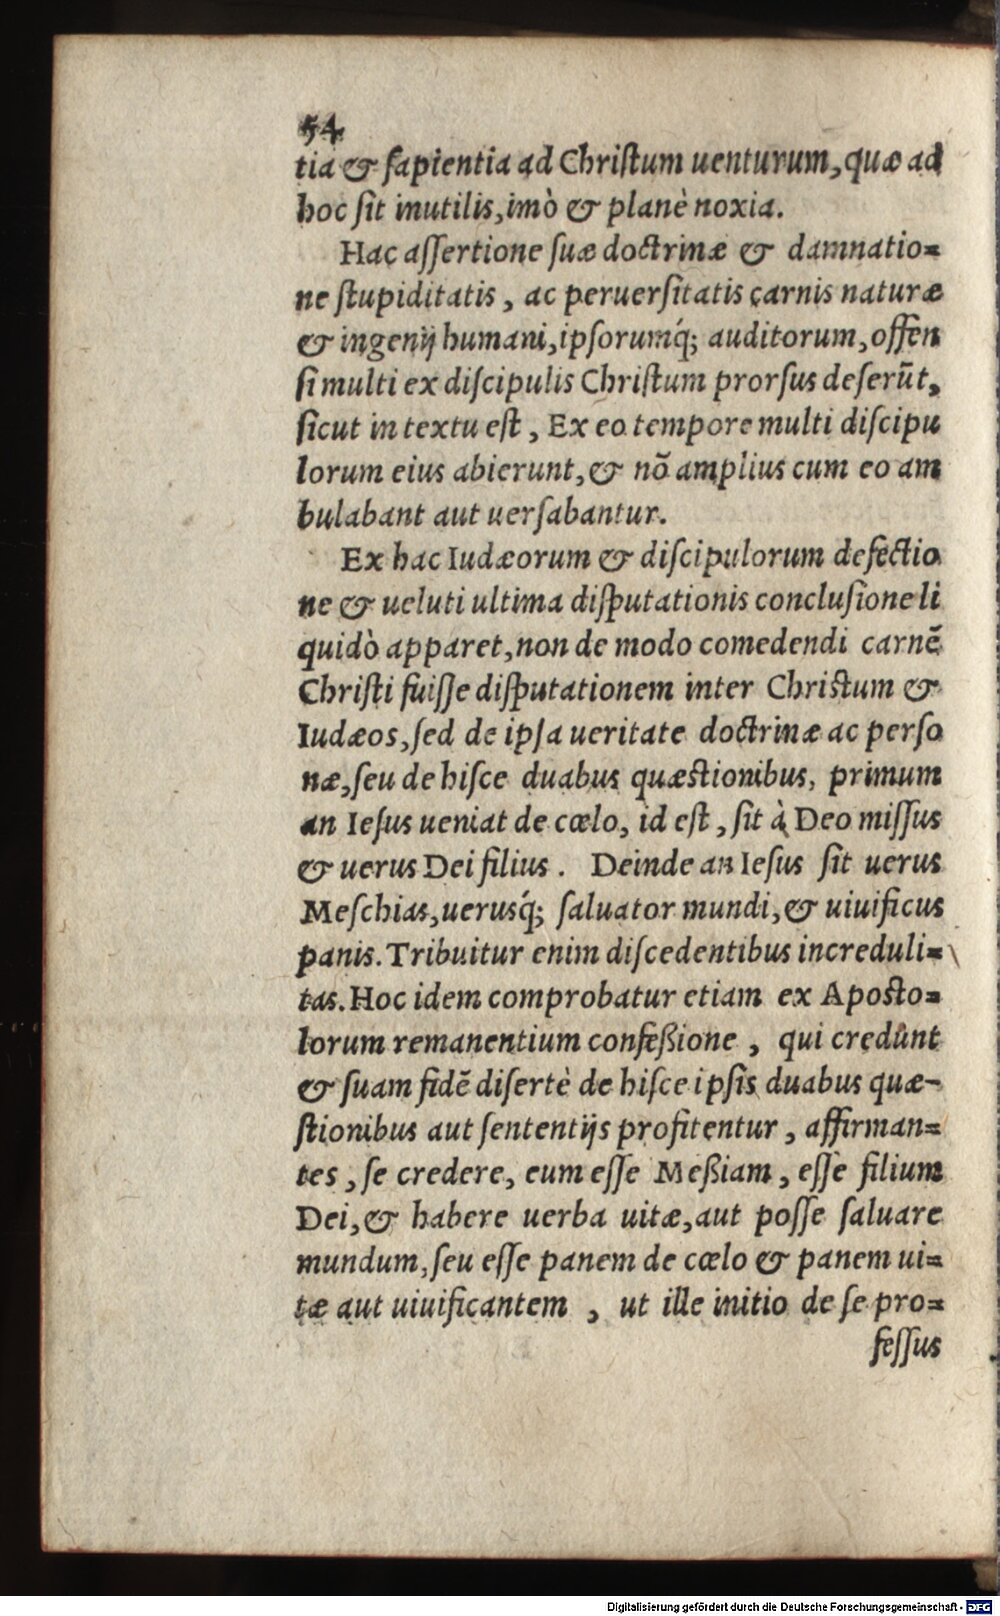 54
tia & ſapientia ad Chriſtum uenturum, quæ ad
hoc ſit inutilis, imò & planè noxia.
Hac aſſertione ſuæ doctrinæ & damnatio=
ne ſtupiditatis, ac peruerſitatis carnis naturæ
& ingenij humani, ipſorumq́; auditorum, offen
ſi multi ex diſcipulis Chriſtum prorſus deſerūt,
ſicut in textu eſt, Ex eo tempore multi diſcipu
lorum eius abierunt, & nō amplius cum eo am
bulabant aut uerſabantur.
Ex hac Iudæorum & diſcipulorum defectio
ne & ueluti ultima diſputationis concluſione li
quidò apparet, non de modo comedendi carnē
Chriſti fuiſſe diſputationem inter Chriſtum &
Iudæos, ſed de ipſa ueritate doctrinæ ac perſo
næ, ſeu de hiſce duabus quæſtionibus, primum
an Ieſus ueniat de cœlo, id eſt, ſit à Deo miſſus
& uerus Dei filius. Deinde an Ieſus ſit uerus
Meſchias, uerusq́; ſaluator mundi, & uiuificus
panis. Tribuitur enim diſcedentibus increduli=
tas. Hoc idem comprobatur etiam ex Apoſto=
lorum remanentium confeßione, qui credunt
& ſuam fidē diſertè de hiſce ipſis duabus quæ-
ſtionibus aut ſententijs profitentur, affirman=
tes, ſe credere, eum eſſe Meßiam, eſſe filium
Dei, & habere uerba uitæ, aut poſſe ſaluare
mundum, ſeu eſſe panem de cœlo & panem ui=
tæ aut uiuificantem, ut ille initio de ſe pro=
feſſus
Digitalisierung gefördert durch die Deutsche Forschungsgemeinschaft - DFG